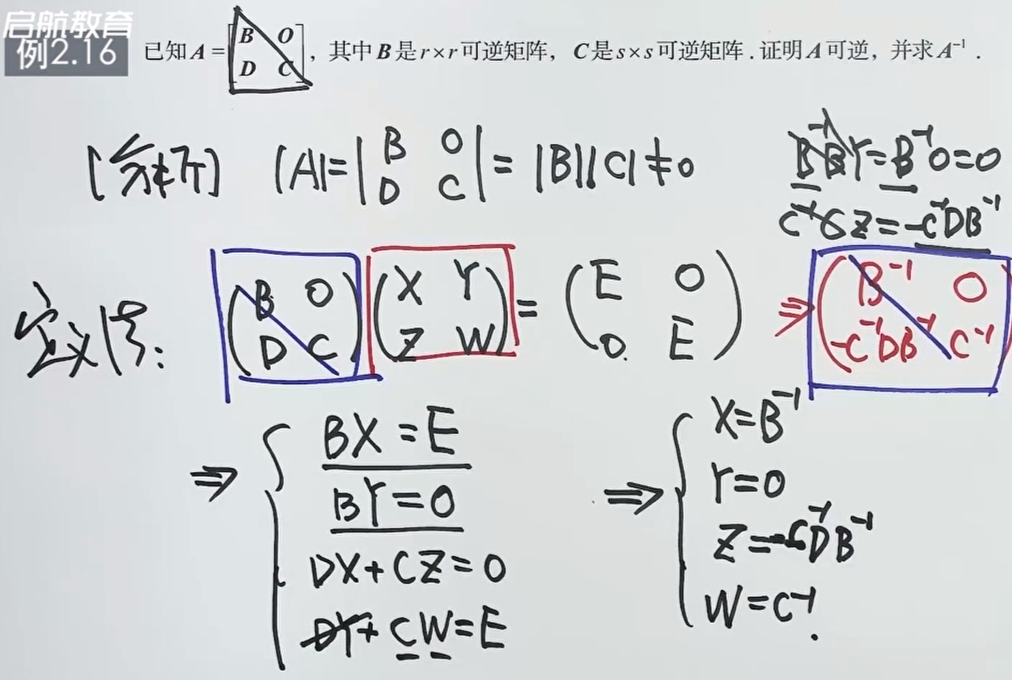 启航教育
例2.16 已知A=[B O D C],其中B是r×r可逆矩阵,C是s×s可逆矩阵.证明A可逆,并求A⁻¹.
[分析] |A|=|B O D C|=|B||C|≠0
B⁻¹BY=B⁻¹O=0
C⁻¹CZ=-C⁻¹DB⁻¹
定义法: (B O D C)(X Y Z W)=(E O O E) ⇒(B⁻¹ O -C⁻¹DB⁻¹ C⁻¹)
⇒ { BX=E
BY=0
DX+CZ=0
DY+CW=E
⇒ { X=B⁻¹
Y=0
Z=-C⁻¹DB⁻¹
W=C⁻¹.